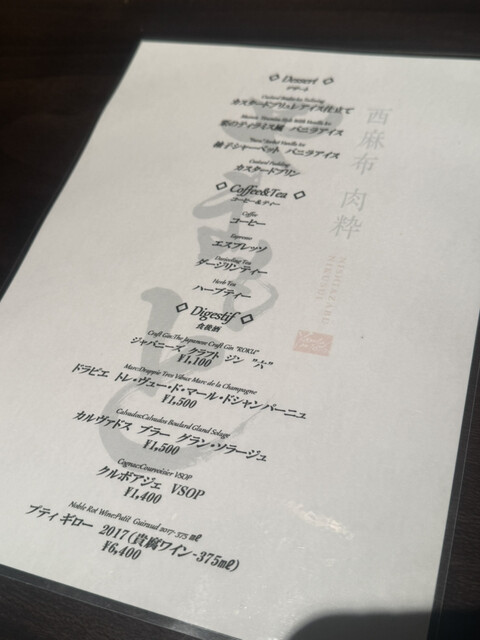 ◇ Dessert ◇
デザート
カスタードブリュレアイス仕立て
Vanilla Ice
栗のティラミス風 バニラアイス
Vanilla Ice
柚子シャーベット バニラアイス
Custard Pudding
カスタードプリン
◇ Coffee&Tea ◇
コーヒー&ティー
Coffee
コーヒー
Espresso
エスプレッソ
Darjeeling Tea
ダージリンティー
Herb Tea
ハーブティー
◇ Digestif ◇
食後酒
Craft Gin:The Japanese Craft Gin "ROKU"
ジャパニーズ クラフト ジン "六"
¥1,100
Marc:Doppie Tres Vieux Marc de la Champagne
ドラピエ トレ・ヴュー・ド・マール・ドシャンパーニュ
¥1,500
Calvados:Calvados Boulard Gland Solage
カルヴァドス ブラー グラン・ソラージュ
¥1,500
Cognac:Courvoisier VSOP
クルボアジェ VSOP
¥1,400
Noble Rot Wine:Putit Guiraud 2017-375 ㎖
プティ ギロー 2017(貴腐ワイン-375㎖)
¥6,400
西麻布 肉粋
NISHIAZABU
NIKUSUI